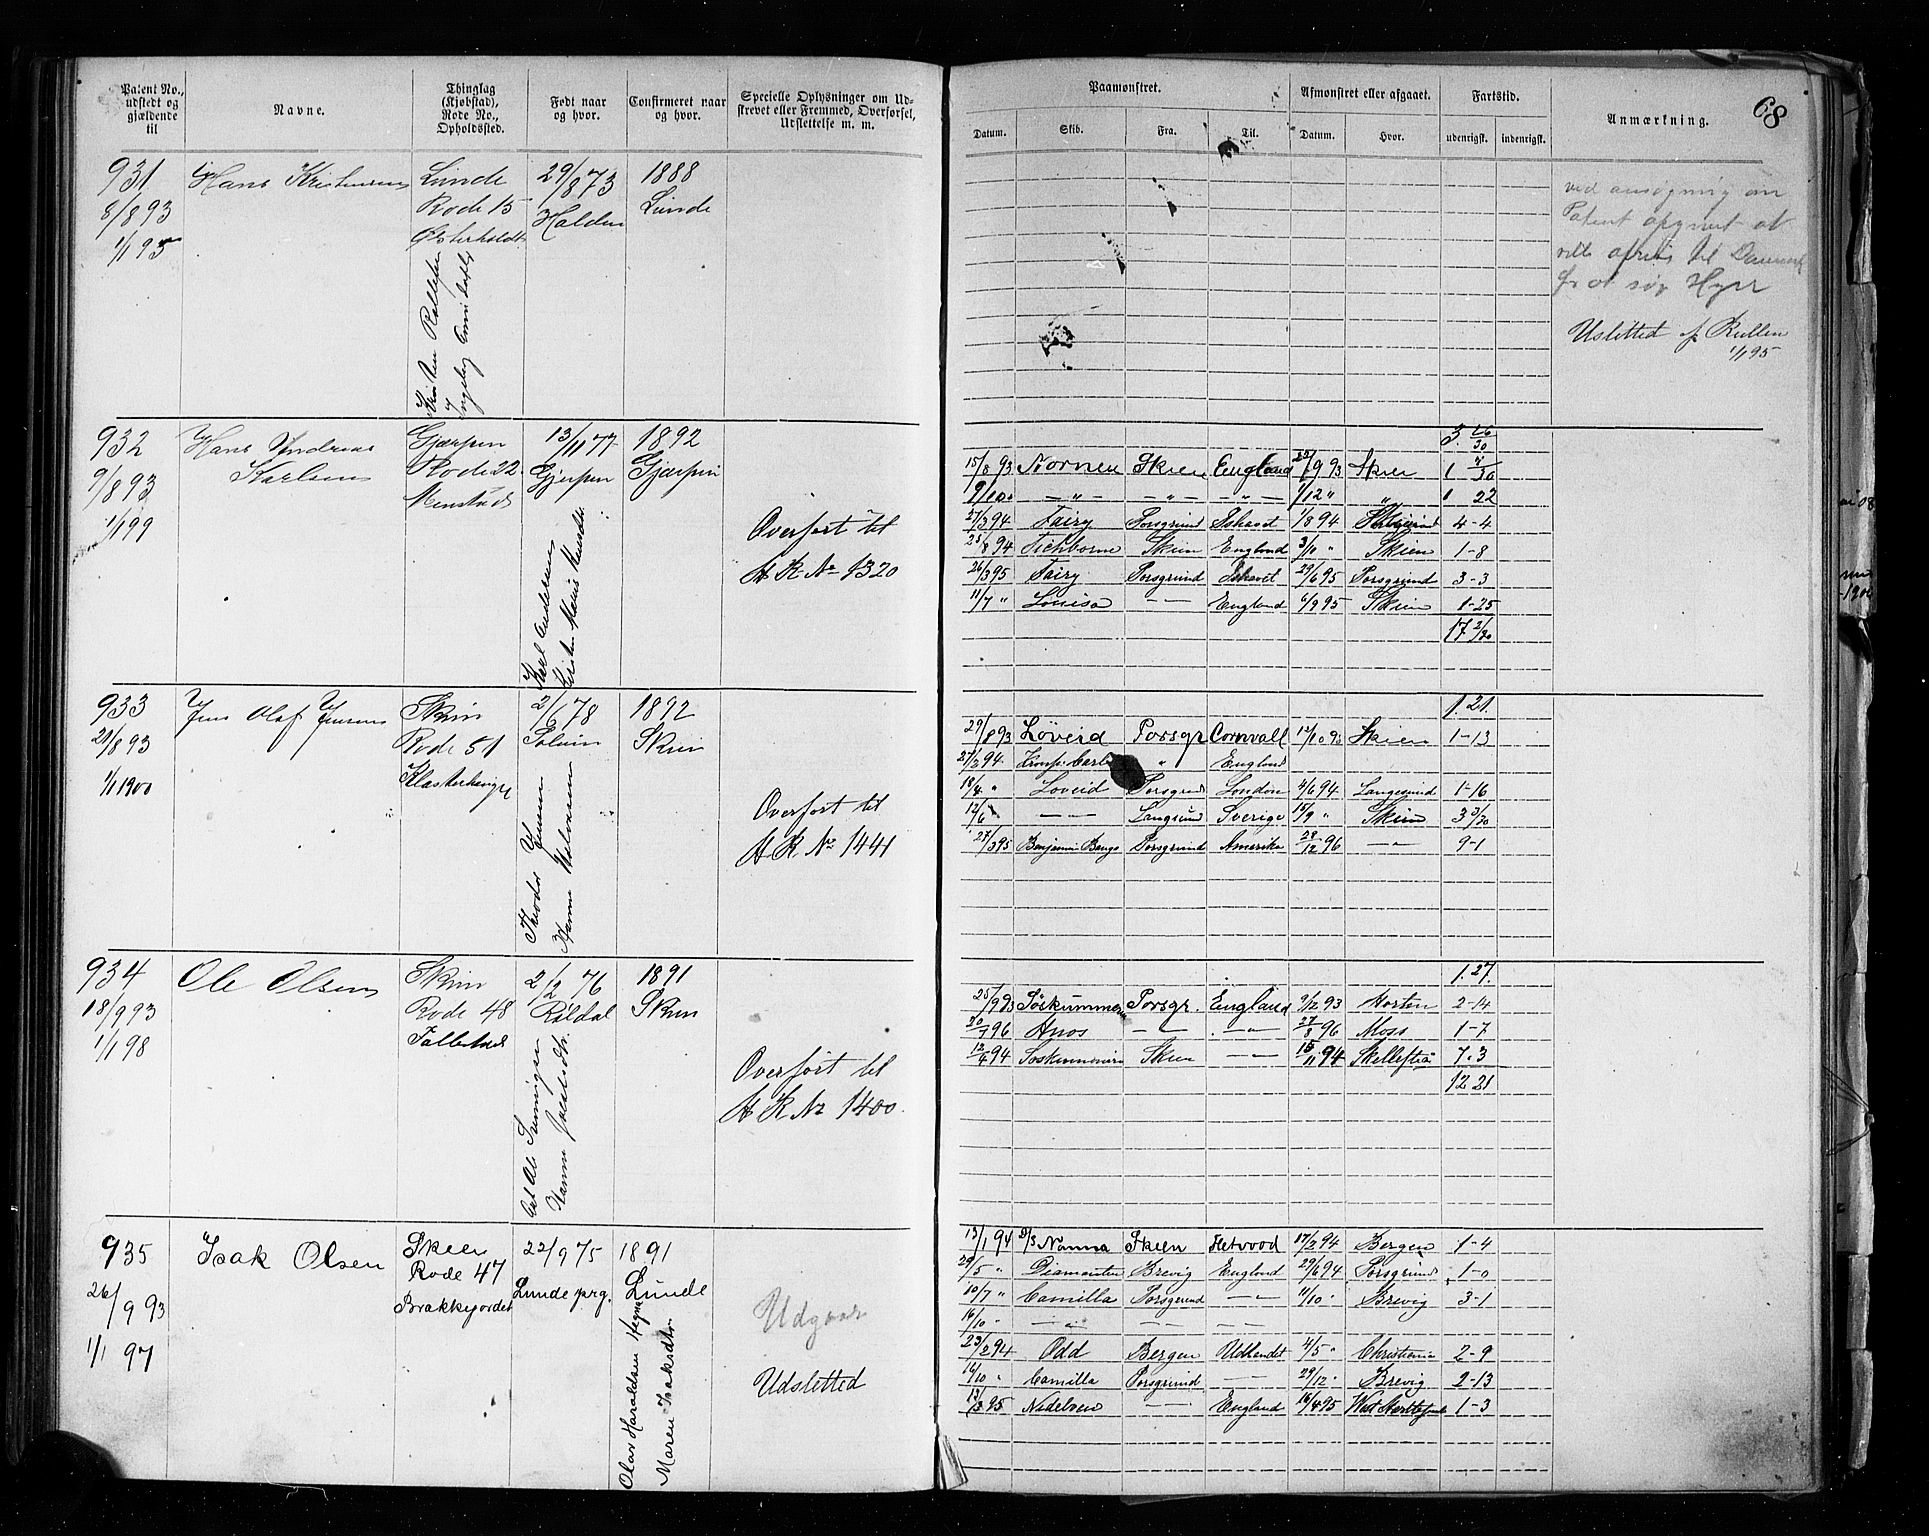 68
Patent No., udstedt og gjældende til
Navne.
Thinglag (Kjøbstad), Rode No., Opholdssted.
Født naar og hvor.
Confirmeret naar og hvor.
Specielle Oplysninger om Udskrevet eller Fremmed, Overførsel, Udslettelse m. m.
Paamønstret.
Afmønstret eller afgaaet.
Fartstid.
Anmærkning.
Datum. Skib. Fra. Til. Datum. Hvor. udenrigsk. indenrigsk.
931 Hans Kristensen Lunde 29/8 73 1888
8/8 93 Rode 15 Holden Lunde
1/1 95 Østerholdt
ved ansøgning om
Patent opgivet at
vilde afreise til Danmark
for at søge Hyre
Uslettet af Rullen
1/1 95
932 Hans Andreas Gjerpen 13/11 77 1892
Karlsen
9/8 93 Rode 22 Gjerpen Gjerpen
1/1 99 Menstad
Karl Andersen
Overført til
H R No 1320
3 26/30
15/8 93 Nornen Skien England 22/9 93 Skien 1
9/10 " — " — — " — — " — 1/12 " " 1 22
27/3 94 Fairy Porsgrund Ishavet 1/8 94 4-4
25/8 94 Tichborne Skien England 3/10 " Skien 1-8
26/3 95 Fairy Porsgrund Ishavet 29/6 95 Porsgrund 3-3
11/7 " Louisa — — England 6/9 95 Skien 1-25
17 2/30
933 Jens Olaf Jensen Skien 2/6 78 1892
21/8 93 Rode 51 Solum Skien
1/1 1900 Klosterhaugen
Theodor Jensen
Overført til
H R No 1441
1.21.
29/8 93 Løveid Porsgr Cornvall Skien 1-13
27/2 94. " England
18/4 " Løveid Porsgrund London 2/6 94 Langesund 1-16
12/6 " — — Langsund Sverige 15/9 " Skien 3
27/3 95 Benjamin Bangs Porsgrund Amerika 28/12 96 — " — 9-1
934 Ole Olsen Skien 2/2 76 1891
18/9 93 Rode 48 Røldal Skien
1/1 98
Overført til
H R No 1400
1.27.
25/9 93 Porsgr. England 2/12 93 Horten 2-14
30/7 96 — — — " — 27/8 96 Moss 1-7
12/4 94 Skien — — 15/11 94 Skellefteå 7.3
12 21
935 Isak Olsen Skien 22/9 75 1891
26/9 93 Rode 47 Lunde prg. Lunde
1/1 97 Brekkejordet
Olav Haraldsen Hegna
Maren Isaksdtr.
Udgaar
Udsletted
13/1 94 D/S Nanna Skien Fletwood 17/2 94 Bergen 1-4
29/5 " Diamanten Brevig England 29/6 94 Porsgrund 1-0
10/7 " Camilla Porsgrund — — 11/10 " Brevig 3-1
16/10 " — " — — — — —
23/2 94 Odd Bergen Udlandet 4/5 " Christiania 2-9
16/10 " Camilla Porsgrund — — 29/12 " Brevig 2-13
13/3 95 Nidelven — — England 16/4 95 West Hartlepool 1-3